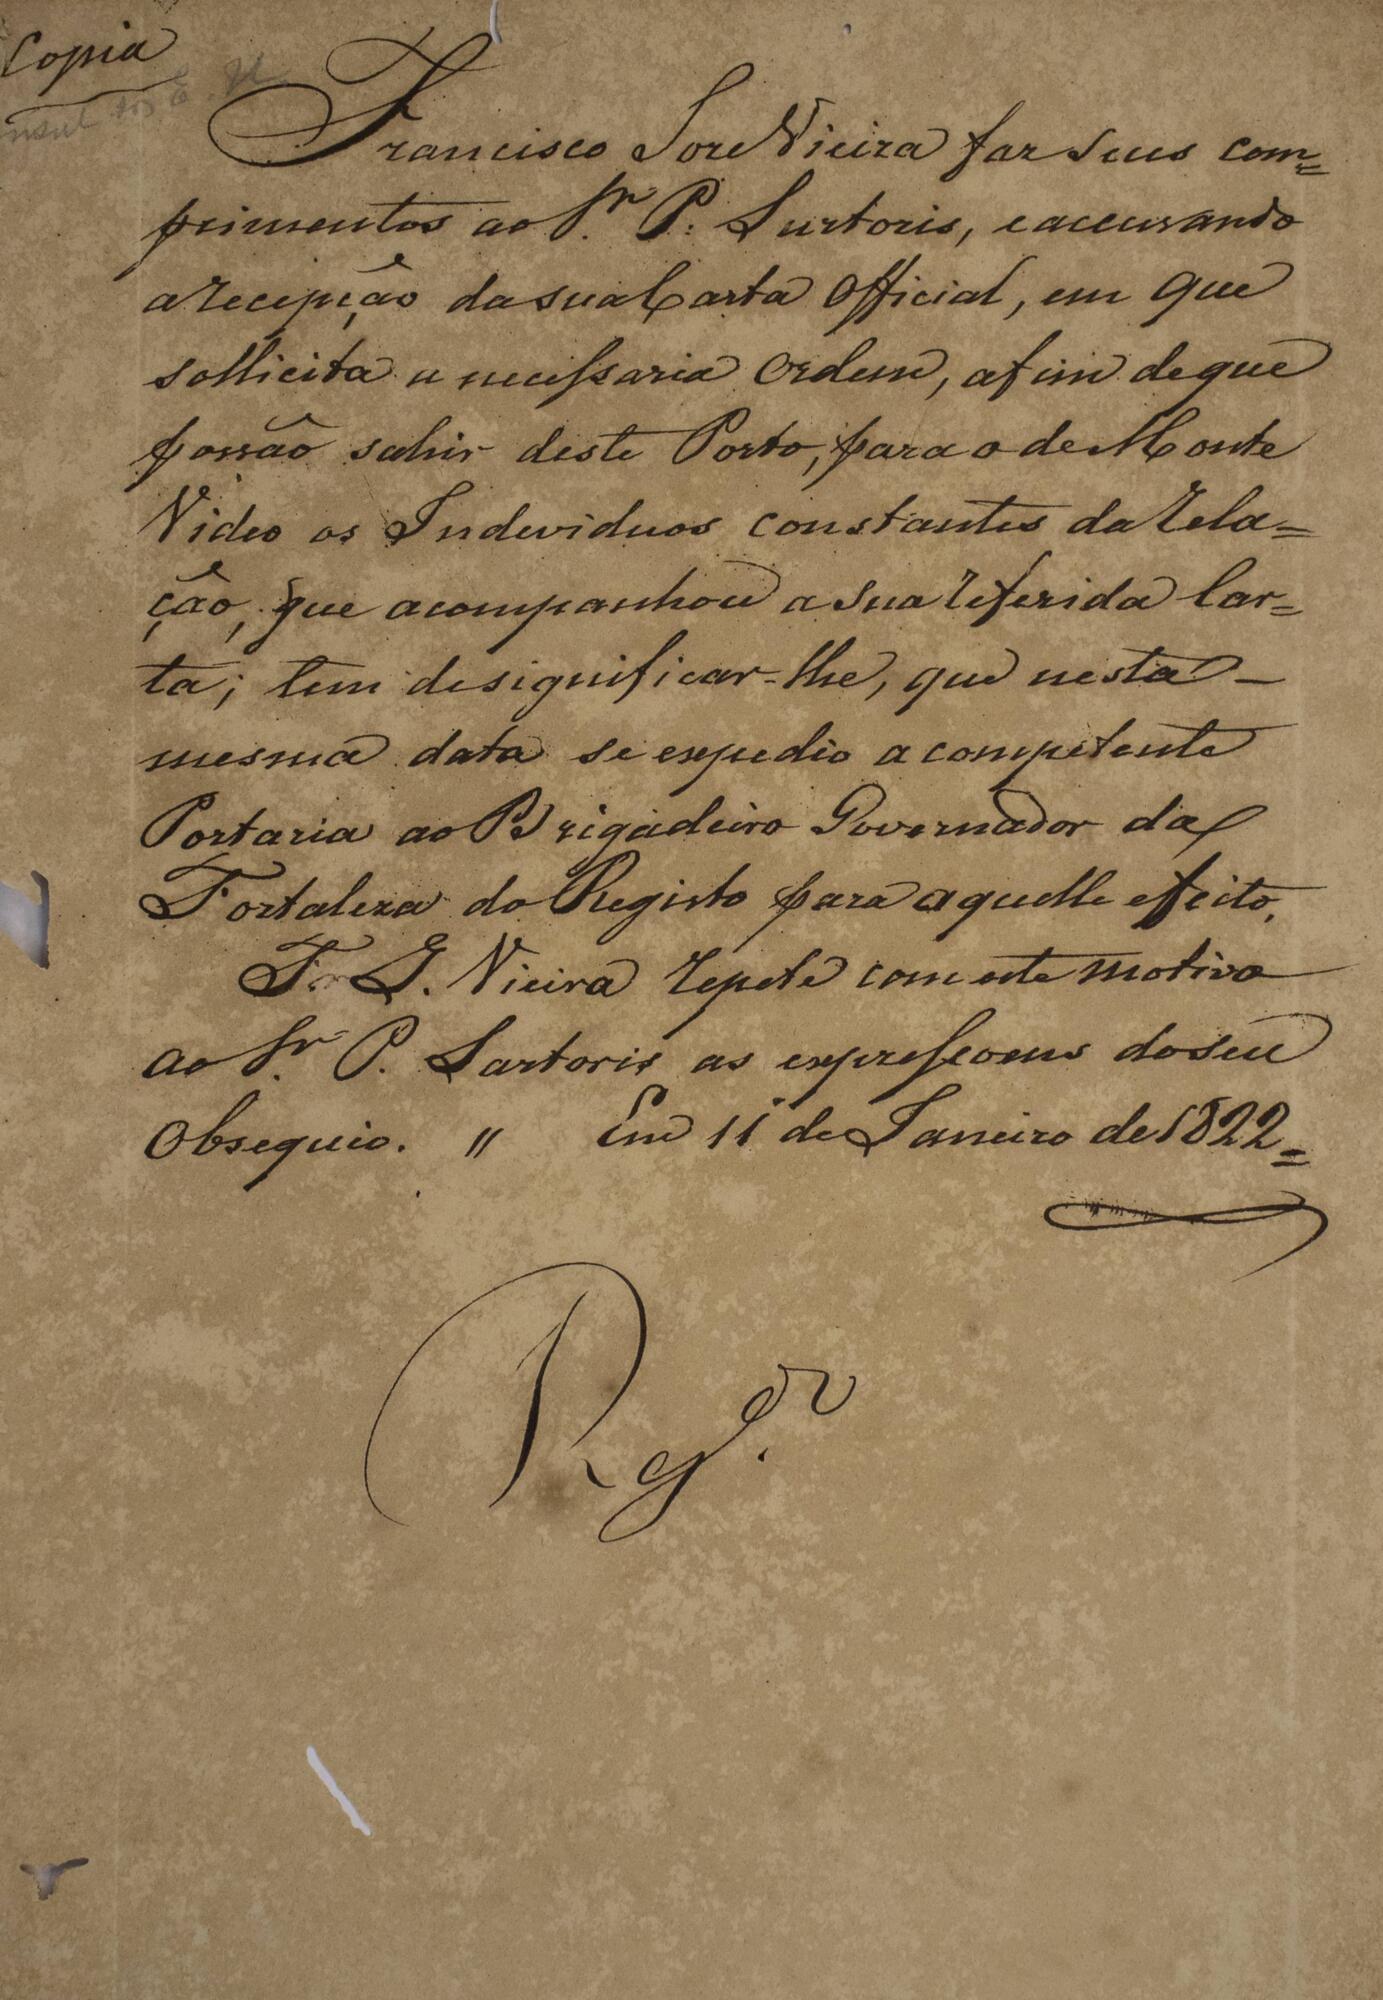 Copia
Francisco Jore Vieira far seus com=
primentos ao Sr. P. Sartoris, e accusando
a recepção da sua Carta Official, em que
sollicita a necessaria Ordem, afim de que
possão sahir deste Porto, para o de Monte
Video os Individuos constantes da rela=
ção, que acompanhou a sua referida Car=
ta; tem de significar-lhe, que nesta
mesma data se expedio a competente
Portaria ao Brigadeiro Governador da
Fortaleza do Registo para aquelle efeito.
F. J. Vieira repete com este motivo
ao Sr. P. Sartoris as expressoens do seu
Obsequio. " Em 11 de Janeiro de 1822=
Rg.do